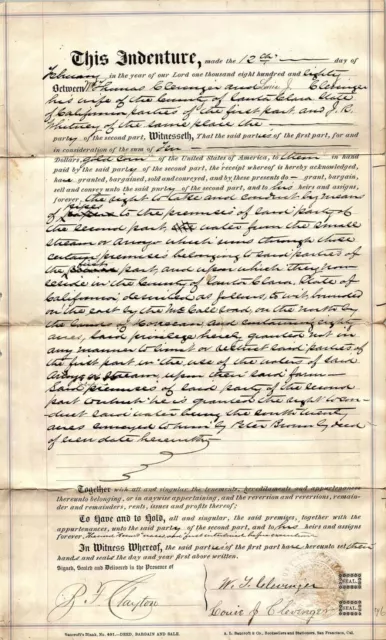 This Indenture, made the 12th day of
February in the year of our Lord one thousand eight hundred and eighty
Between Thomas Clevinger and J. Clevinger
his wife of the County of Santa Clara State
of California parties of the first part, and J. R.
Whitney of the same place the
party of the second part, Witnesseth, That the said parties of the first part, for and
in consideration of the sum of Ten
Dollars, gold coin of the United States of America, to them in hand
paid by the said party of the second part, the receipt whereof is hereby acknowledged,
have granted, bargained, sold and conveyed, and by these presents do grant, bargain,
sell and convey unto the said party of the second part, and to his heirs and assigns,
forever, the right to take and conduct by means
of pipes to the premises of said party of
the second part, water from the small
stream or arroyo which runs through those
certain premises belonging to said parties of
the first part and upon which they now
reside in the County of Santa Clara State of
California described as follows, to wit: bounded
on the east by the McCall road, on the north by
the lands of and containing eighty
acres, said privilege hereby granted not in
any manner to limit or restrict said parties of
the first part in the use of the waters of said
arroyo or stream upon their said farm
Said premises of said party of the second
part to which he is granted the right to con-
duct said water being the south twenty
acres conveyed to him by Peter Brown by deed
of even date herewith
Together with all and singular, the tenements, hereditaments and appurtenances
thereunto belonging, or in anywise appertaining, and the reversion and reversions, remain-
der and remainders, rents, issues and profits thereof;
To Have and to Hold, all and singular, the said premises, together with the
appurtenances, unto the said party of the second part, and to his heirs and assigns
forever.
In Witness Whereof, the said parties of the first part have hereunto set their
hands and seals the day and year first above written.
Signed, Sealed and Delivered in the Presence of
R. F. Clayton
W. T. Clevinger
SEAL.
J. Clevinger
SEAL.
Bancroft's Blank, No. 401.—DEED, BARGAIN AND SALE.
A. L. Bancroft & Co., Booksellers and Stationers, San Francisco, Cal.